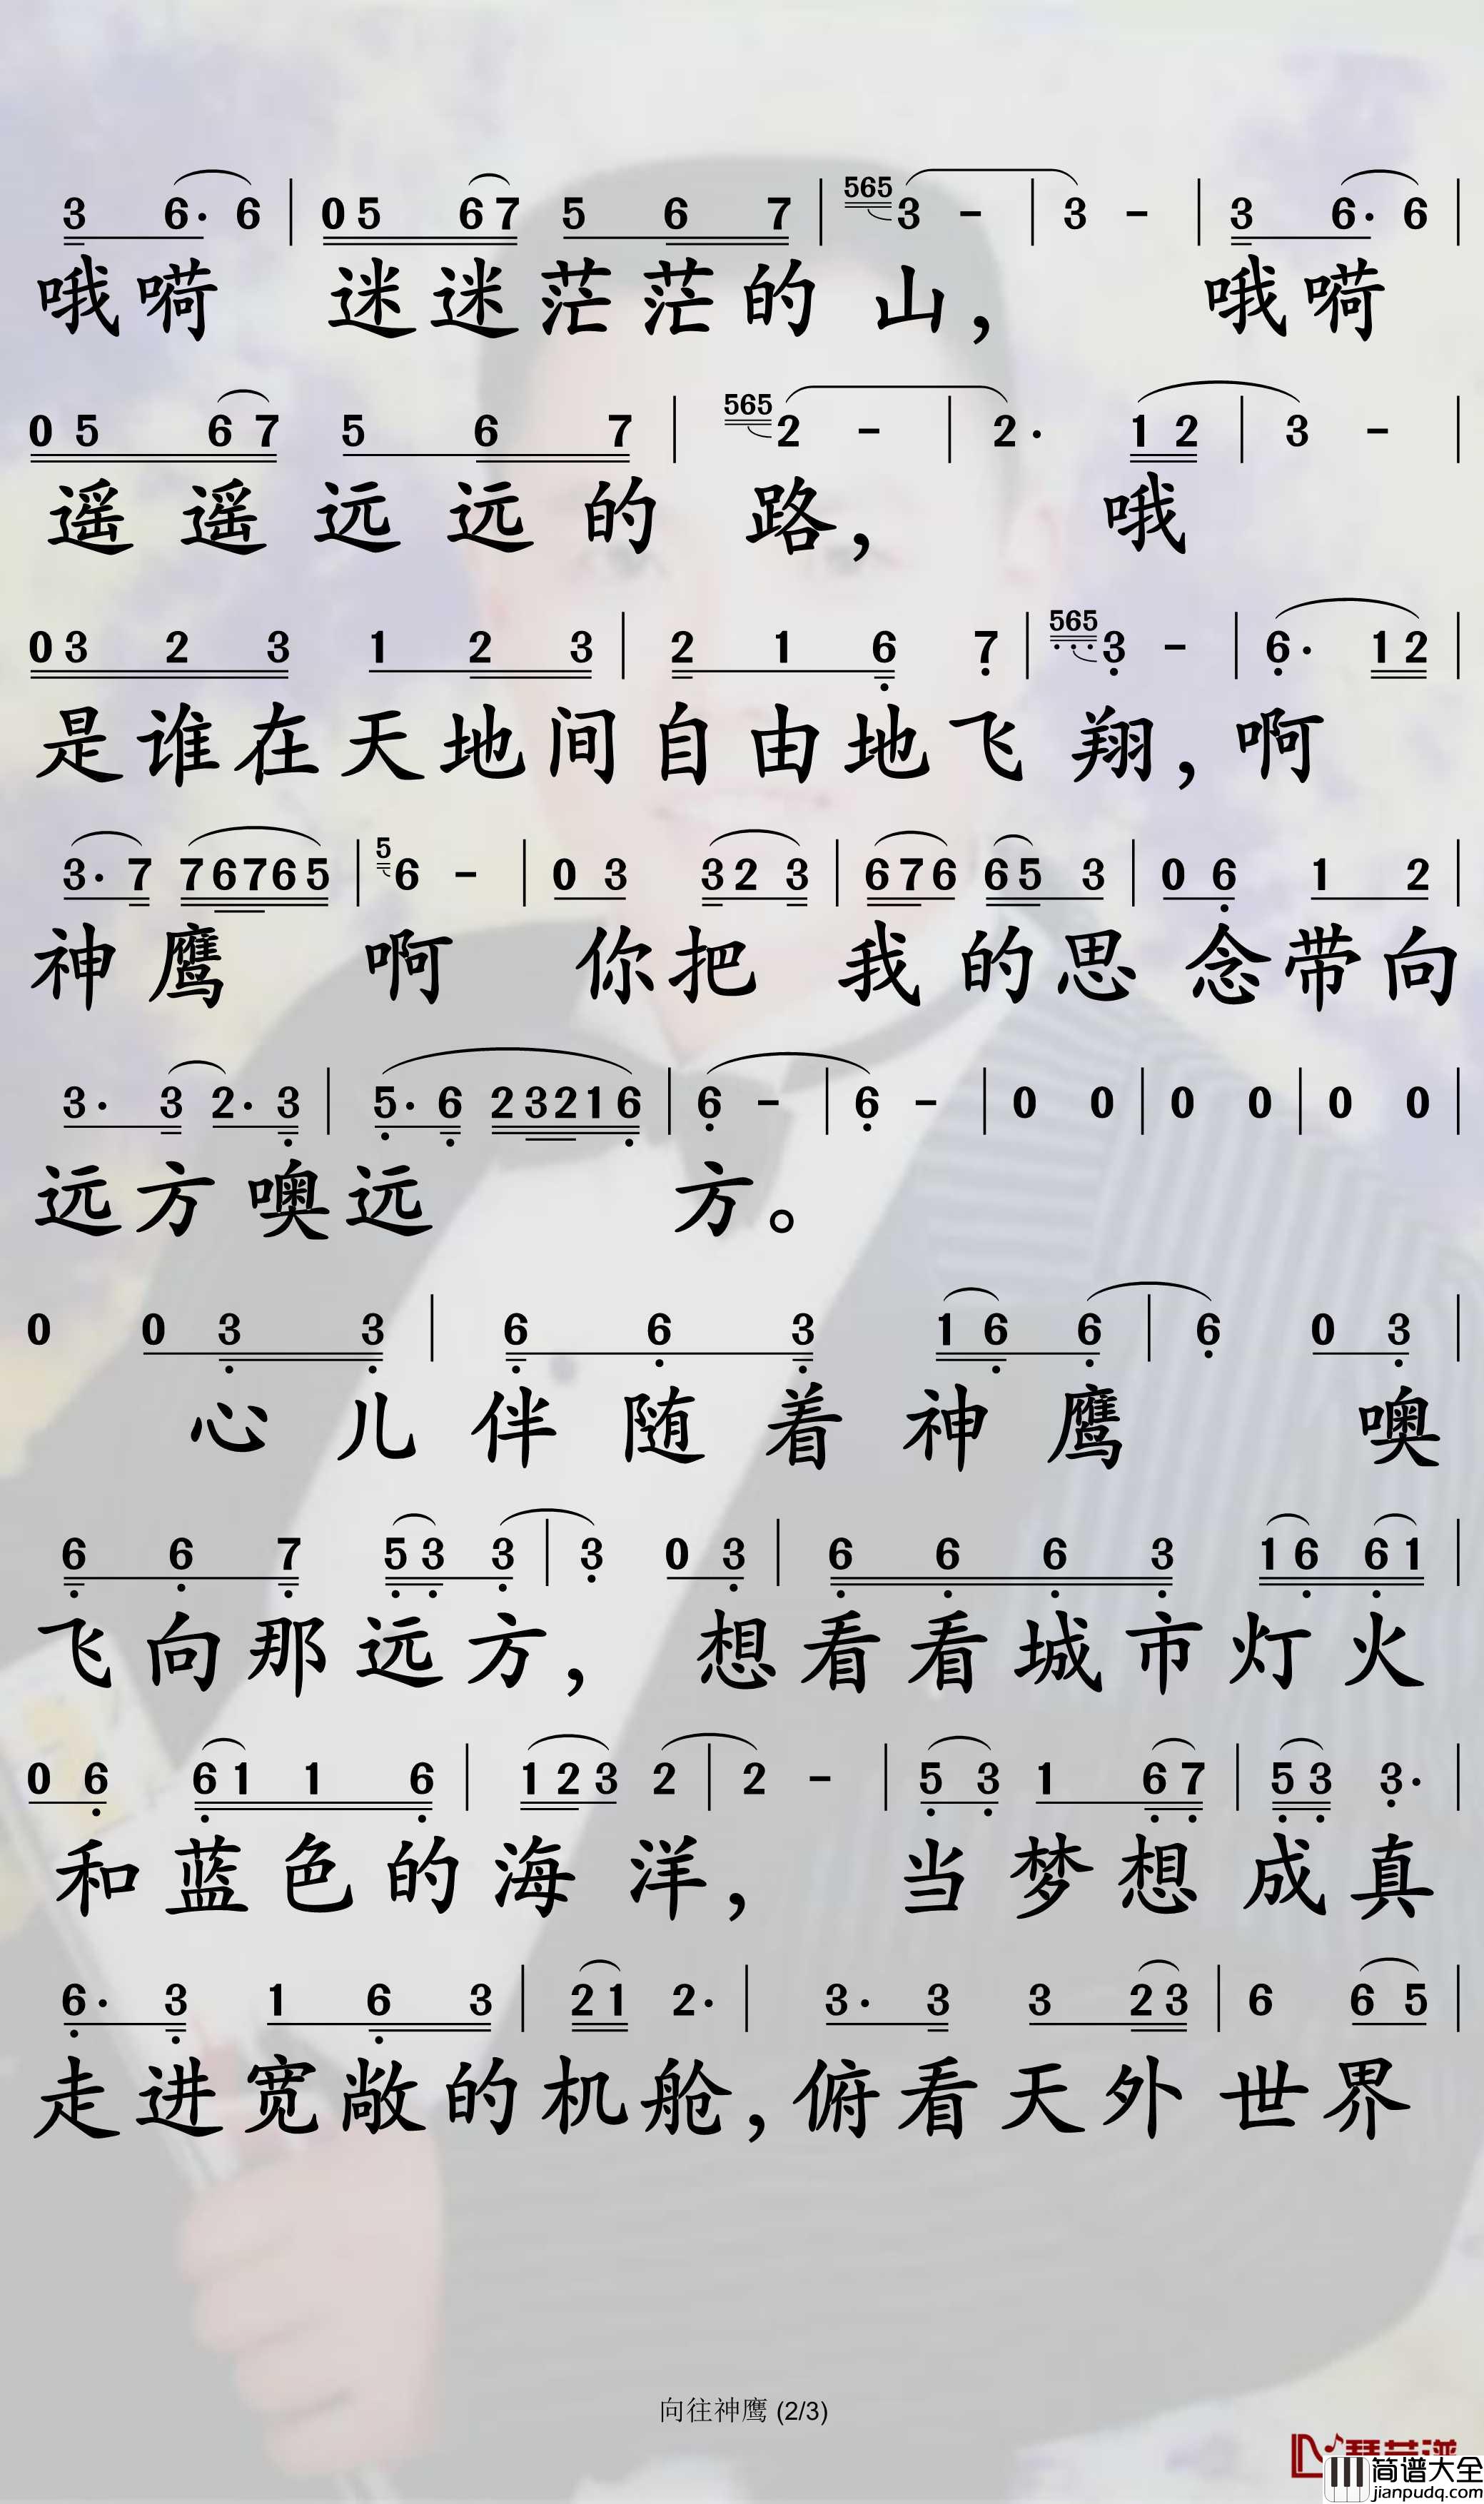 3 6· 6 | 0 5 6 7 5 6 7 | 565 3 - | 3 - | 3 6· 6 |
哦嗬 迷迷茫茫的山， 哦嗬
0 5 6 7 5 6 7 | 565 2 - | 2· 1 2 | 3 - |
遥遥远远的路， 哦
0 3 2 3 1 2 3 | 2 1 6 7 | 565 3 - | 6· 1 2 |
是谁在天地间自由地飞翔，啊
3· 7 7 6 7 6 5 | 5 6 - | 0 3 3 2 3 | 6 7 6 6 5 3 | 0 6 1 2 |
神鹰 啊 你把 我的思念带向
3· 3 2· 3 | 5· 6 2 3 2 1 6 | 6 - | 6 - | 0 0 | 0 0 | 0 0 |
远方噢远 方。
0 0 3 3 | 6 6 3 1 6 6 | 6 0 3 |
心儿伴随着神鹰 噢
6 6 7 5 3 3 | 3 0 3 | 6 6 6 3 1 6 6 1 |
飞向那远方， 想看看城市灯火
0 6 6 1 1 6 | 1 2 3 2 | 2 - | 5 3 1 6 7 | 5 3 3· |
和蓝色的海洋， 当梦想成真
6· 3 1 6 3 | 2 1 2· | 3· 3 3 2 3 | 6 6 5 |
走进宽敞的机舱，俯看天外世界
向往神鹰 (2/3)
简谱大全
jianpudq.com